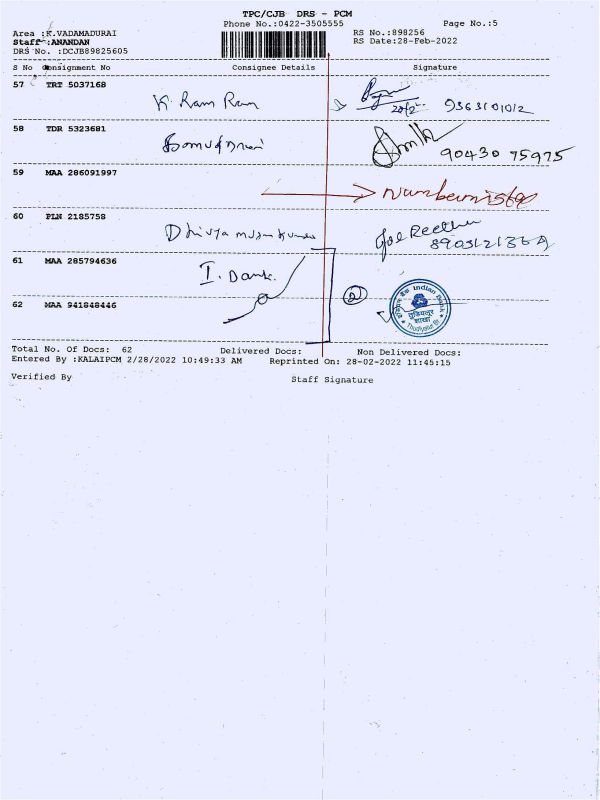 TPC/CJB DRS - PCM
Phone No.:0422-3505555 Page No.:5
Area :K.VADAMADURAI RS No.:898256
Staff :ANANDAN RS Date:28-Feb-2022
DRS No. :DCJB89825605
S No Consignment No Consignee Details Signature
57 TRT 5037168
K. Ram Ram 20/2 9363101012
58 TDR 5323681
90430 75975
59 MAA 286091997
60 PLN 2185758
61 MAA 285794636
I. Bank. 2
62 MAA 941848446
इंडियन बैंक Indian Bank
तुडियलूर
शाखा
Thudiyalur Br
Total No. Of Docs: 62 Delivered Docs: Non Delivered Docs:
Entered By :KALAIPCM 2/28/2022 10:49:33 AM Reprinted On: 28-02-2022 11:45:15
Verified By Staff Signature